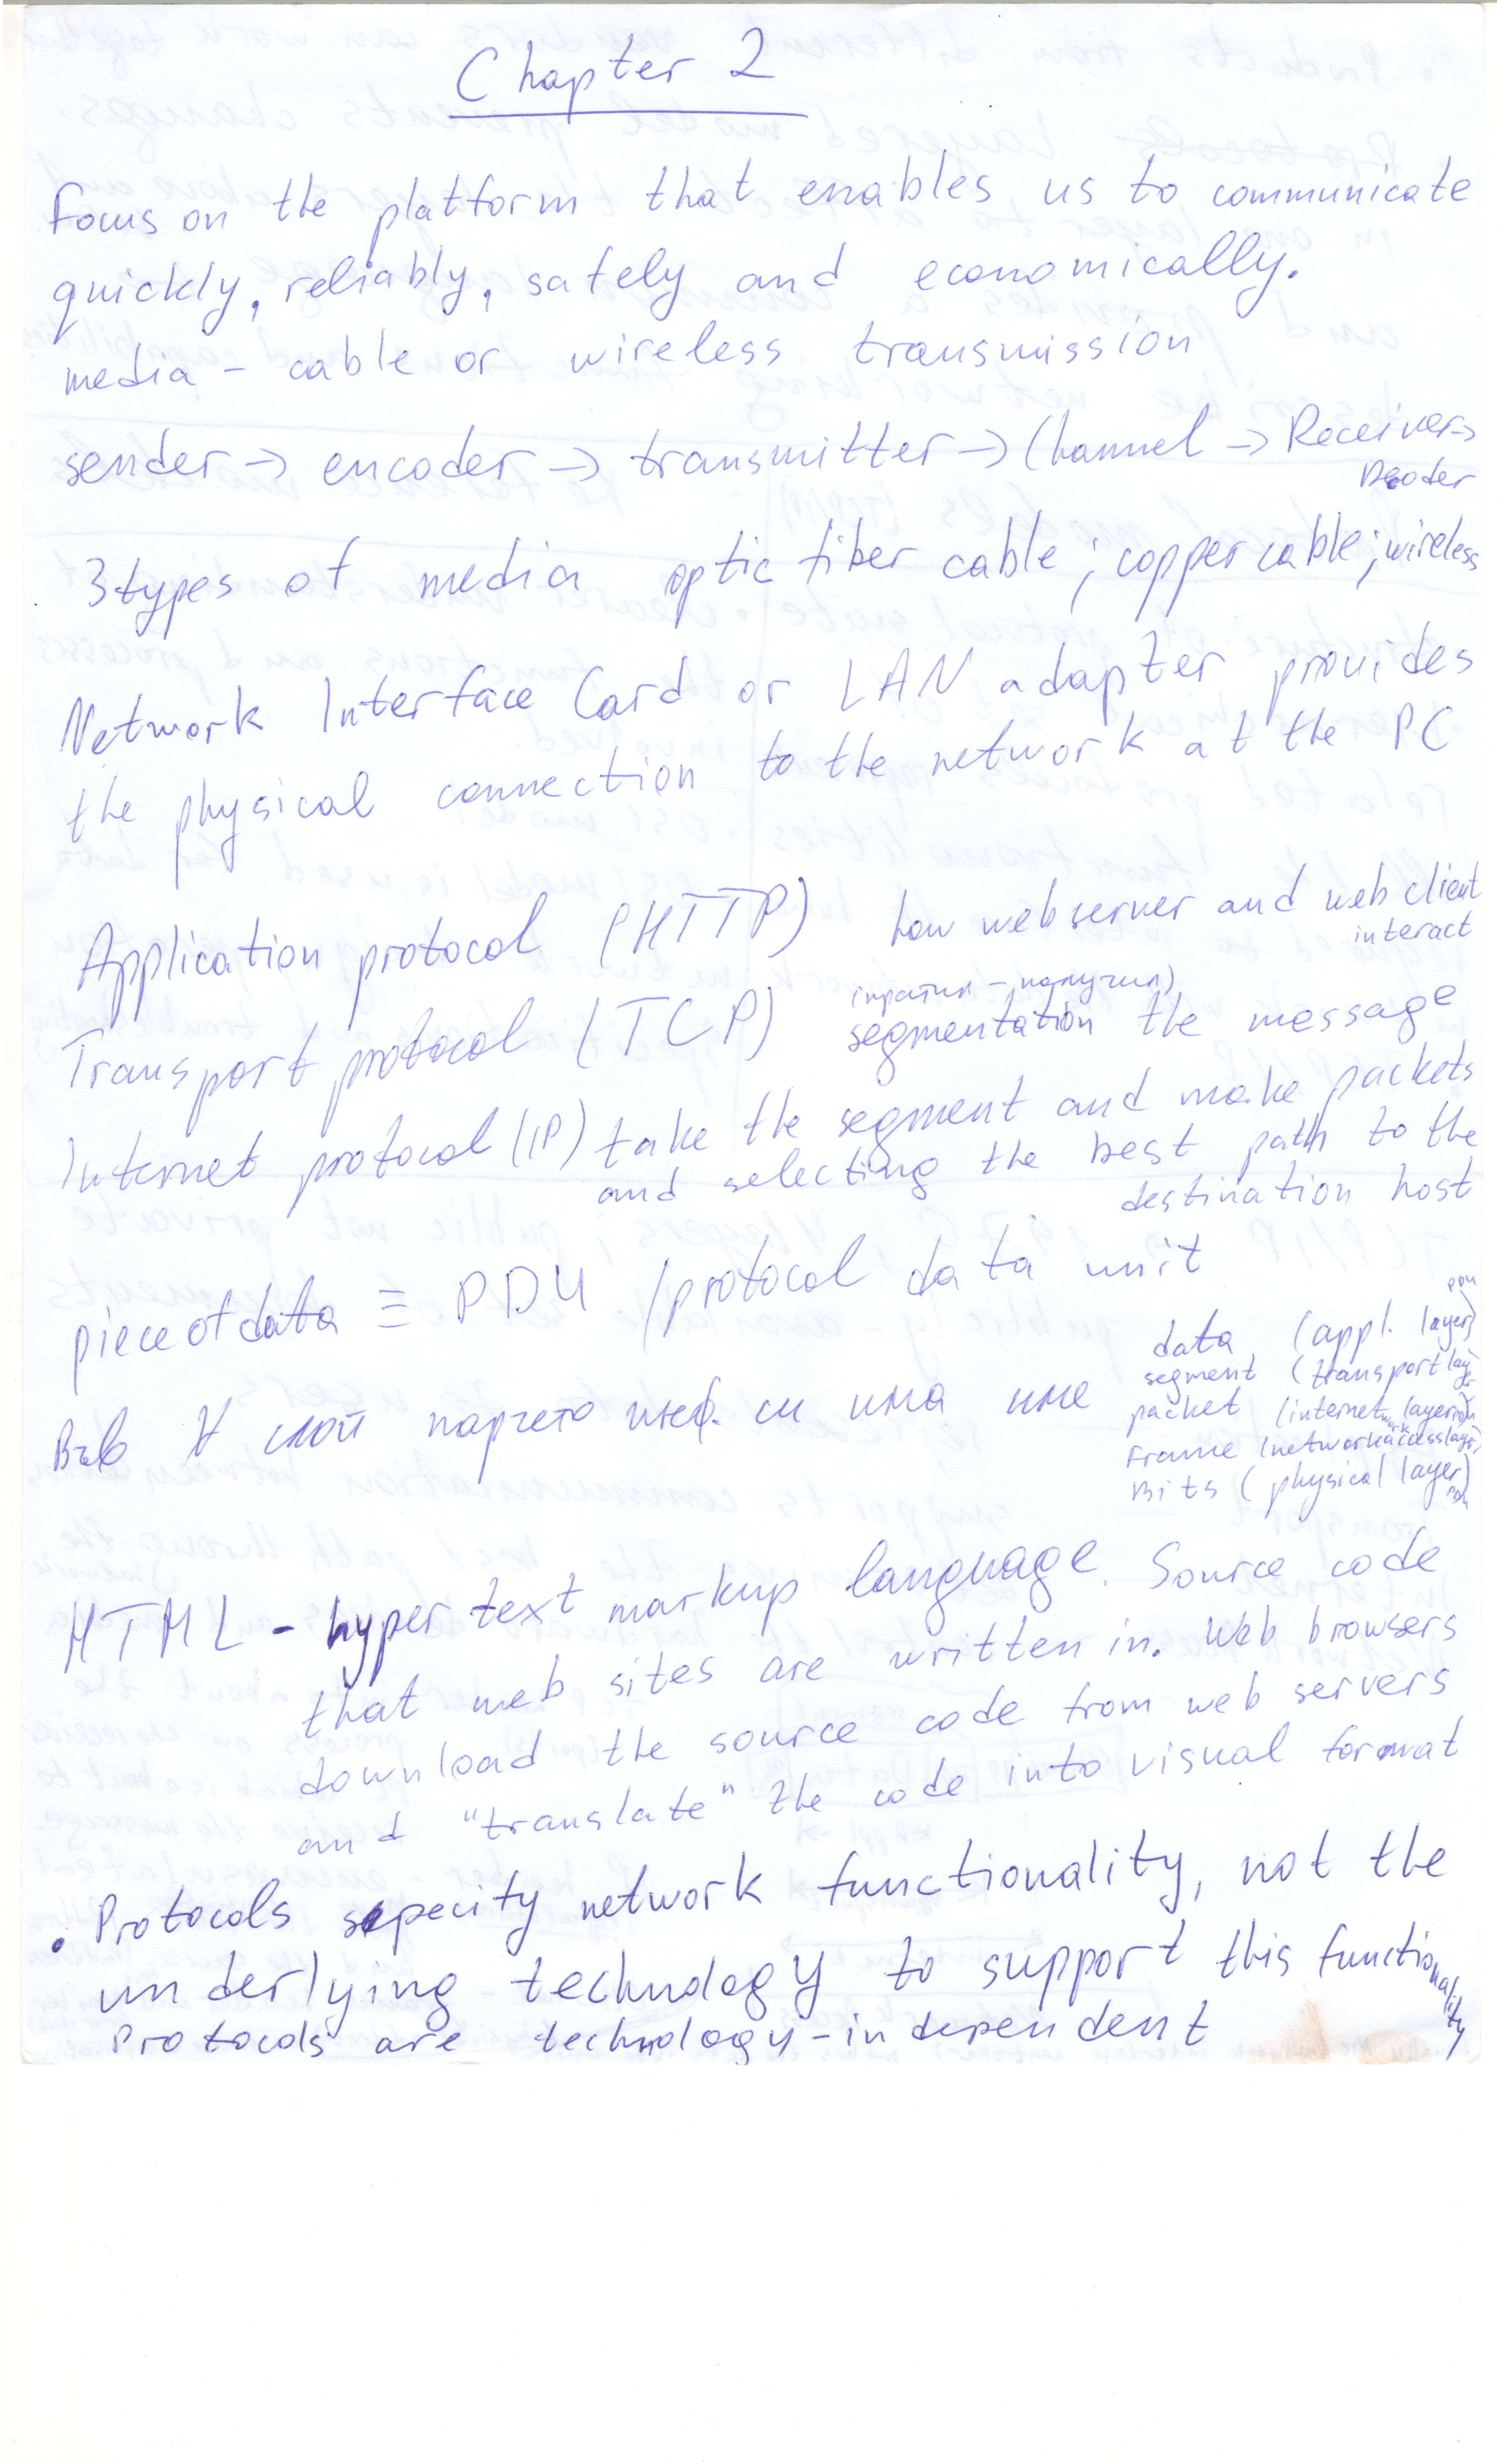 Chapter 2
Focus on the platform that enables us to communicate
quickly, reliably, safely and economically.
media - cable or wireless transmission
sender -> encoder -> transmitter -> Channel -> Receiver ->
Decoder
3 types of media optic fiber cable; copper cable; wireless
Network Interface Card or LAN adapter provides
the physical connection to the network at the PC
Application protocol (HTTP) how web server and web client
interact
Transport protocol (TCP) (пратил - получил)
segmentation the message
Internet protocol (IP) take the segment and make packets
and selecting the best path to the
destination host
piece of data ≡ PDU / protocol data unit
data (appl. layer)
segment (transport layer
Във ∀ слой парчето инф. си има име packet (internetwork layer
Frame (network access layer)
Bits (physical layer)
HTML - hyper text markup language. Source code
that web sites are written in. Web browsers
download the source code from web servers
and "translate" the code into visual format
• Protocols specify network functionality, not the
underlying technology to support this functionality
Protocols are technology-independent